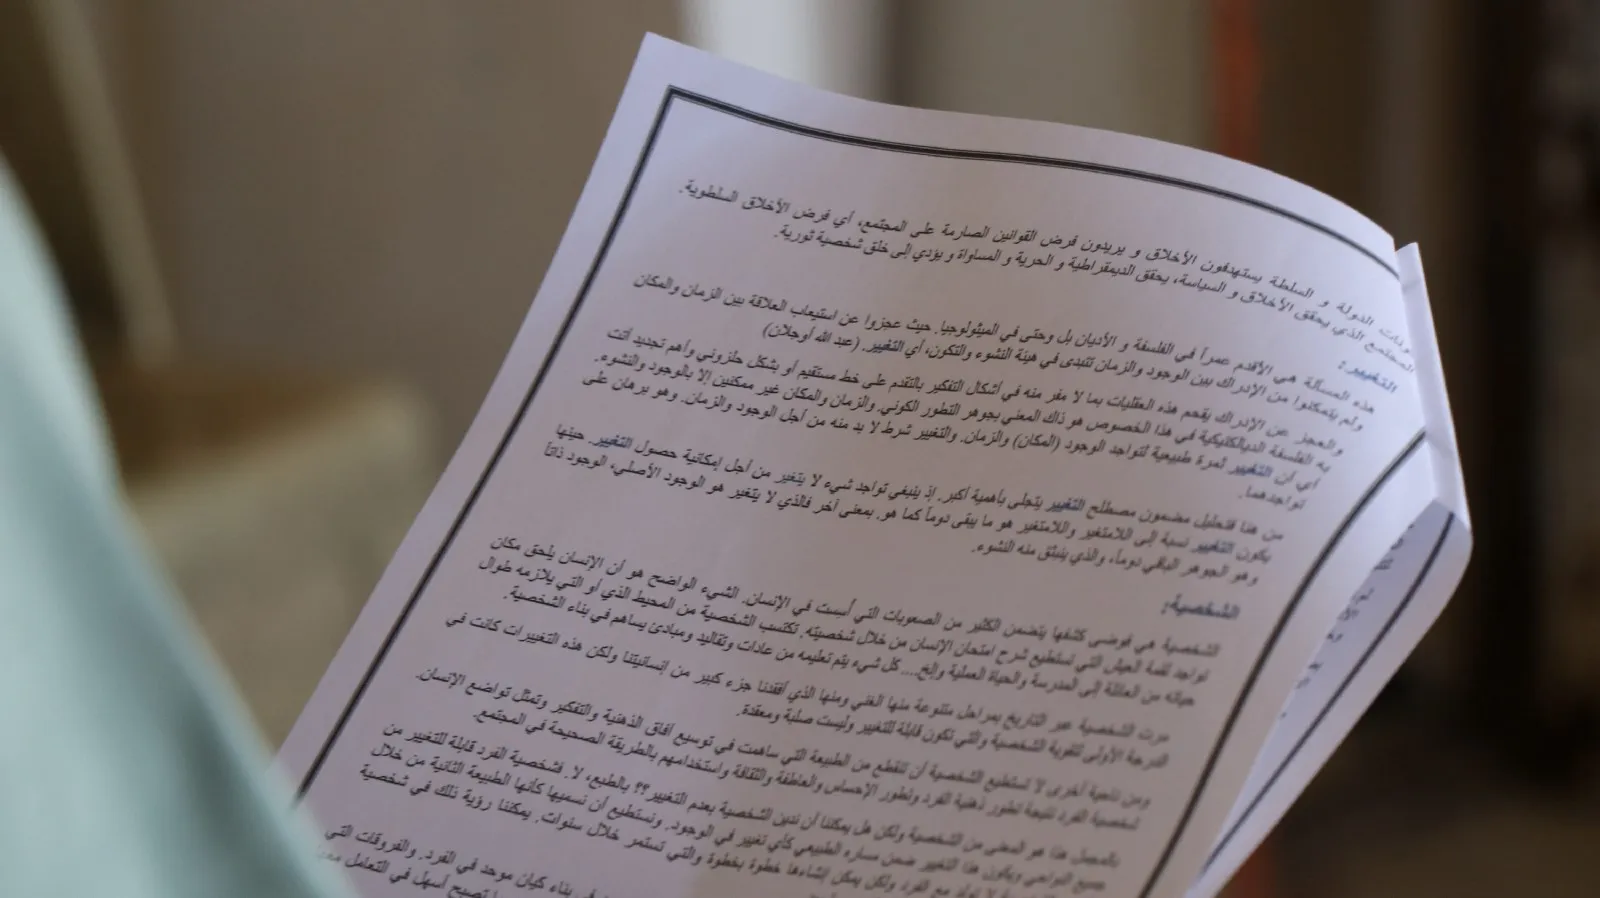 الدولة و السلطة يستهدفون الأخلاق و يريدون فرض القوانين الصارمة على المجتمع، أي فرض الأخلاق السلطوية.
المجتمع الذي يحقق الأخلاق و السياسة، يحقق الديمقراطية و الحرية و المساواة و يؤدي إلى خلق شخصية ثورية.
التغيير:
هذه المسألة هي الأقدم عمراً في الفلسفة و الأديان بل وحتى في الميثولوجيا. حيث عجزوا عن استيعاب العلاقة بين الزمان والمكان
ولم يتمكنوا من الإدراك بين الوجود والزمان لتتبدى في هيئة النشوء والتكون، أي التغيير. (عبد الله أوجلان)
والعجز عن الإدراك يقحم هذه العقليات بما لا مفر منه في أشكال التفكير بالتقدم على خط مستقيم أو بشكل حلزوني وأهم تجديد أتت
به الفلسفة الديالكتيكية في هذا الخصوص هو ذاك المعني بجوهر التطور الكوني. والزمان والمكان غير ممكنين إلا بالوجود والنشوء.
أي أن التغيير ثمرة طبيعية لتواجد الوجود (المكان) والزمان. والتغيير شرط لا بد منه من أجل الوجود والزمان. وهو برهان على
تواجدهما.
من هنا فتحليل مضمون مصطلح التغيير يتجلى بأهمية أكبر. إذ ينبغي تواجد شيء لا يتغير من أجل إمكانية حصول التغيير. حينها
يكون التغيير نسبة إلى اللامتغير واللامتغير هو ما يبقى دوماً كما هو. بمعنى آخر فالذي لا يتغير هو الوجود الأصلي، الوجود ذاتاً
وهو الجوهر الباقي دوماً، والذي ينبثق منه النشوء.
الشخصية:
الشخصية هي فوضى كشفها يتضمن الكثير من الصعوبات التي أسِست في الإنسان. الشيء الواضح هو أن الإنسان يلحق مكان
تواجد لقمة العيش التي نستطيع شرح امتحان الإنسان من خلال شخصيته. تكتسب الشخصية من المحيط الذي أو التي يلازمه طوال
حياته من العائلة إلى المدرسة والحياة العملية وإلخ.... كل شيء يتم تعليمه من عادات وتقاليد ومبادئ يساهم في بناء الشخصية.
مرت الشخصية عبر التاريخ بمراحل متنوعة منها الغني ومنها الذي أفقدنا جزء كبير من إنسانيتنا ولكن هذه التغييرات كانت في
الدرجة الأولى لتقوية الشخصية والتي تكون قابلة للتغيير وليست صلبة ومعقدة.
ومن ناحية أخرى لا تستطيع الشخصية أن تنقطع من الطبيعة التي ساهمت في توسيع أفاق الذهنية والتفكير وتمثل تواضع الإنسان.
شخصية الفرد نتيجة تطور ذهنية الفرد وتطور الإحساس والعاطفة والثقافة واستخدامهم بالطريقة الصحيحة في المجتمع.
بالمجمل هذا هو المعنى من الشخصية ولكن هل يمكننا أن ندين الشخصية بعدم التغيير؟؟ بالطبع، لا. فشخصية الفرد قابلة للتغيير من
جميع النواحي ويكون هذا التغيير ضمن مساره الطبيعي كأي تغيير في الوجود. ونستطيع أن نسميها كأنها الطبيعة الثانية من خلال
مع الفرد ولكن يمكن إنشاءها خطوة بخطوة والتي تستمر خلال سنوات. يمكننا رؤية ذلك في شخصية
في بناء كيان موحد في الفرد. والفروقات التي
تصبح أسهل في التعامل